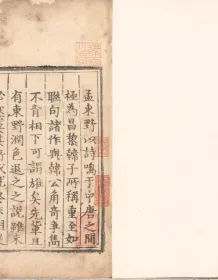 孟東野以詩鳴于中唐之間
極為昌黎韓子所稱重至如
聯句諸作與韓公角奇爭雋
不肯相下可謂雄矣先輩且
有東野潤色退之之說雖未